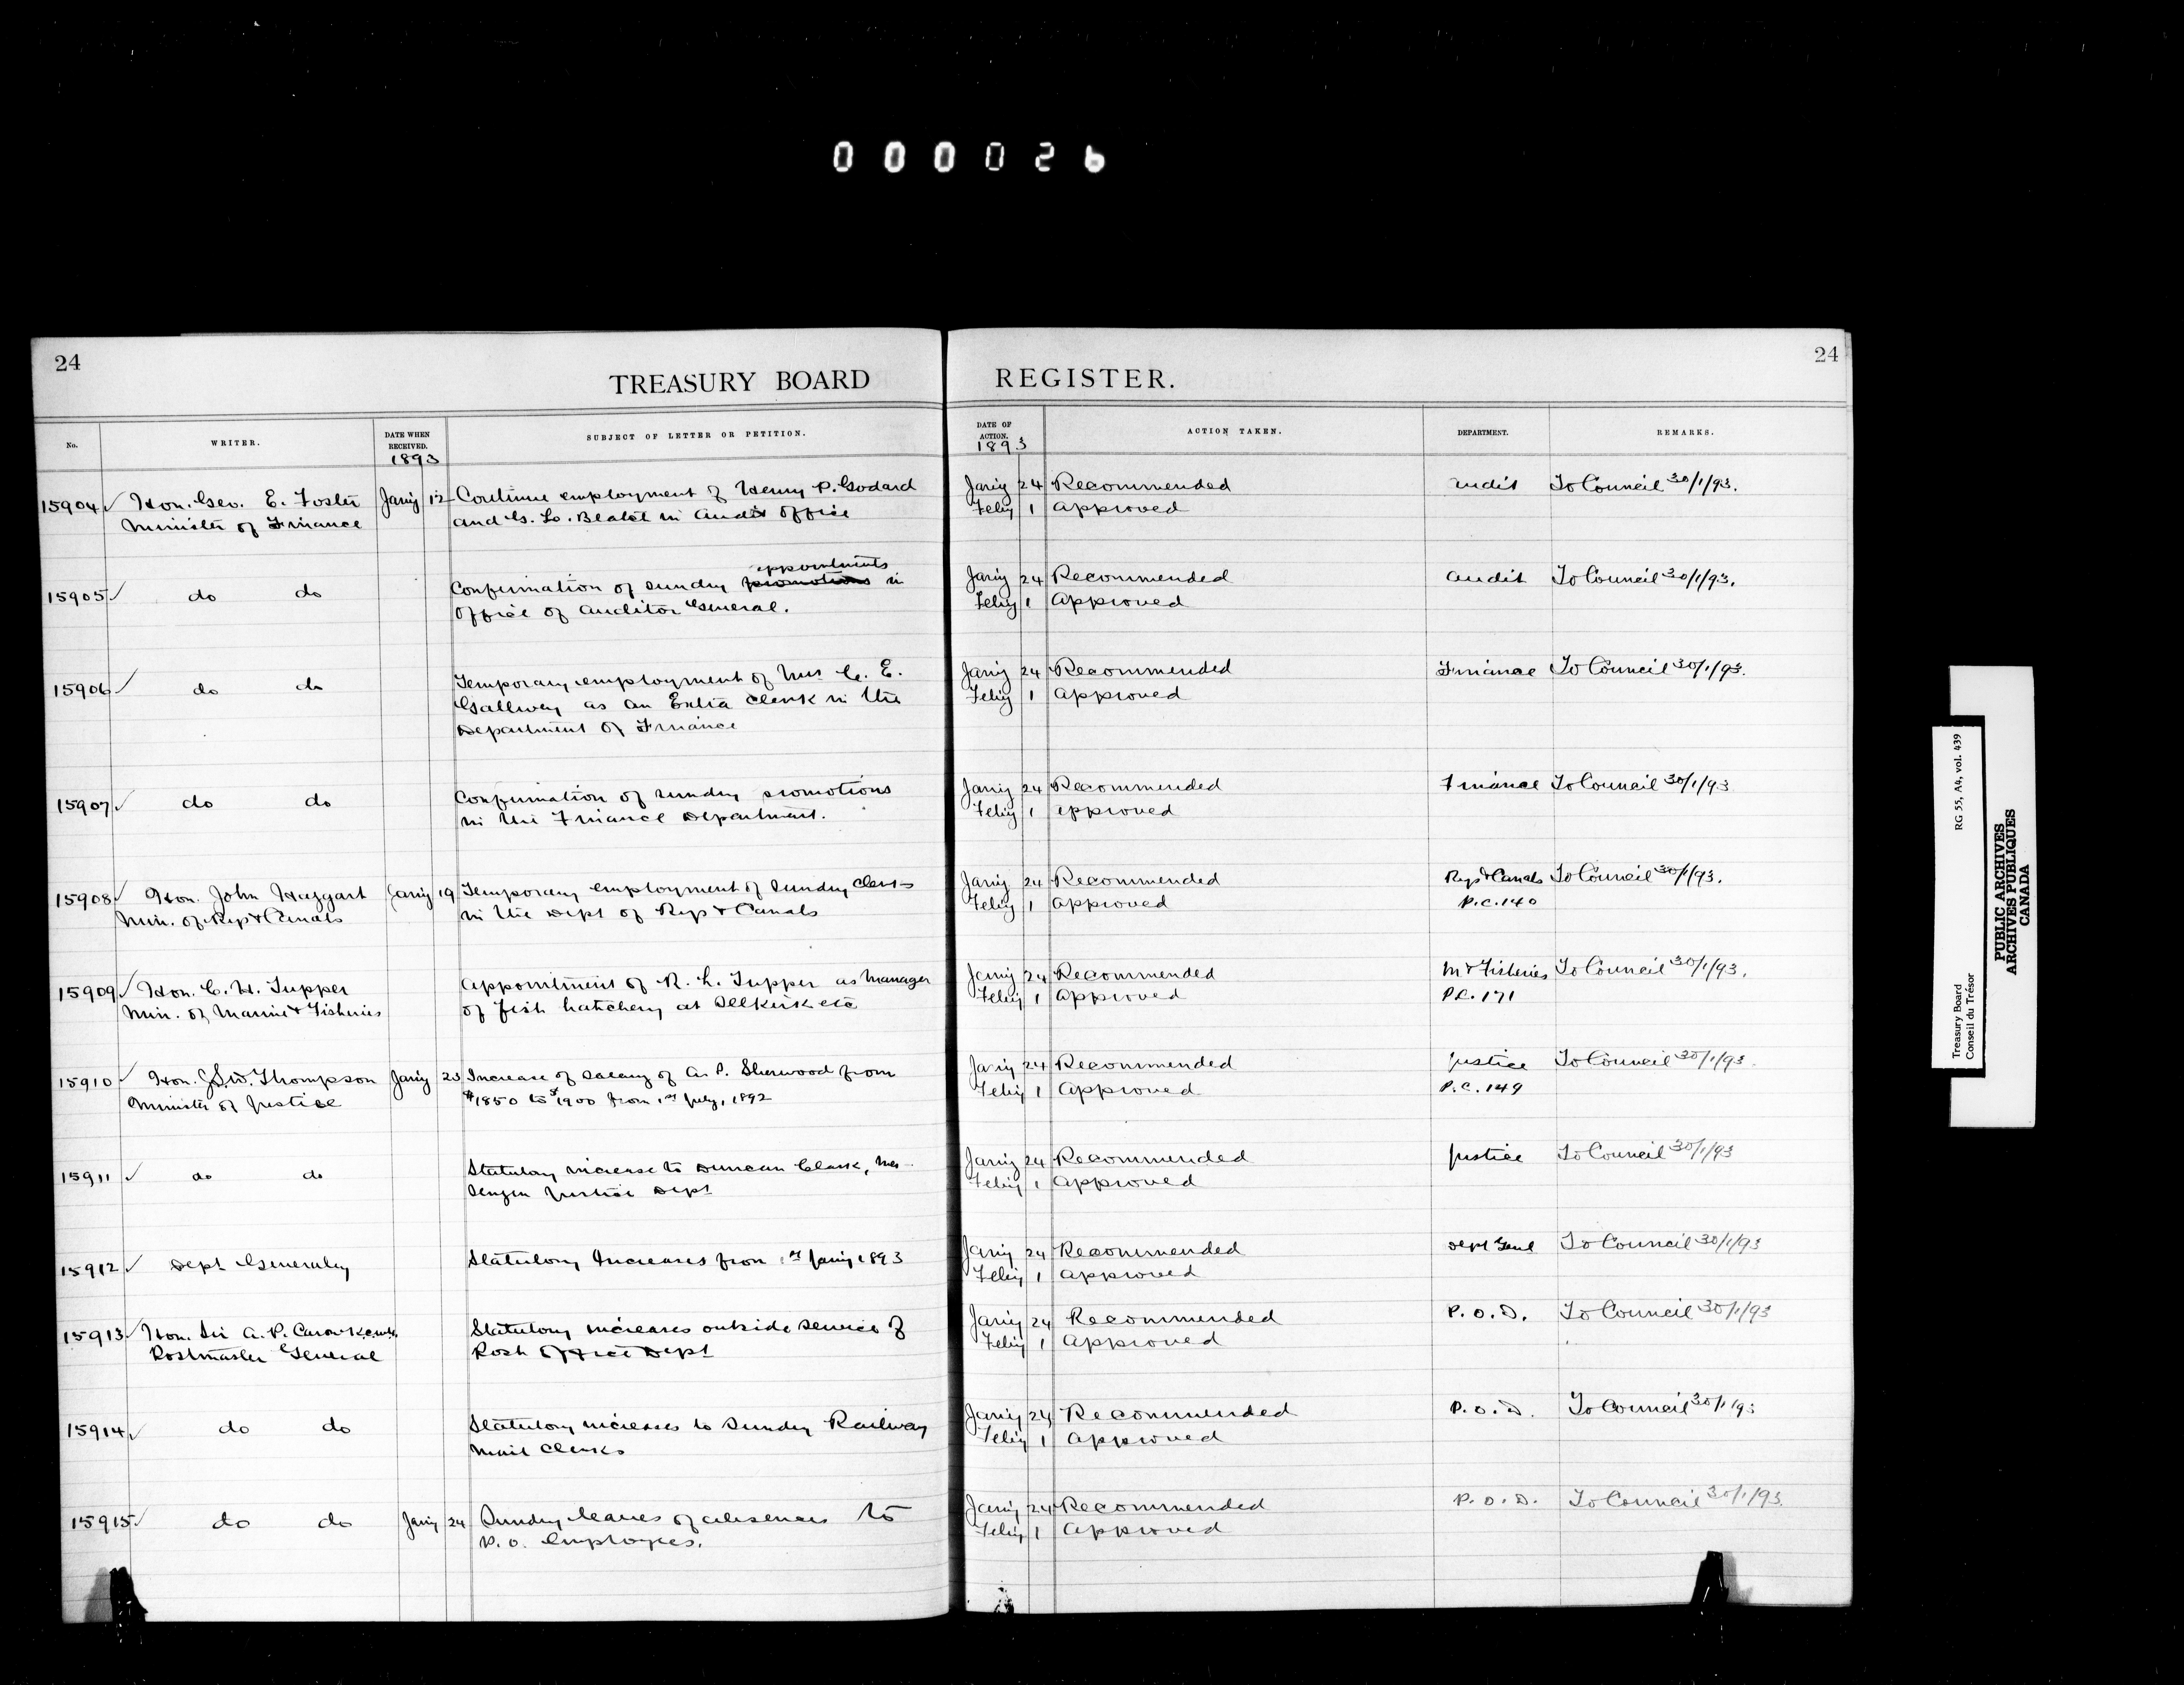 000026
24
24
TREASURY BOARD REGISTER.
No. WRITER. DATE WHEN RECEIVED. 1893 SUBJECT OF LETTER OR PETITION. DATE OF ACTION. 1893 ACTION TAKEN. DEPARTMENT. REMARKS.
15904 ✓ Hon. Geo. E. Foster Jany 12 Continue employment of Henry P. Godard Jany 24 Recommended Audit To Council 30/1/93.
Minister of Finance and G. L. in Audit Office Feby 1 Approved
appointments
15905 ✓ do do Confirmation of sundry promotions in Jany 24 Recommended Audit To Council 30/1/93.
Office of Auditor General. Feby 1 Approved
15906 ✓ do do Temporary employment of C. E. Jany 24 Recommended Finance To Council 30/1/93.
Gallwey as an Extra Clerk in the Feby 1 Approved
Department of Finance
15907 ✓ do do Confirmation of sundry promotions Jany 24 Recommended Finance To Council 30/1/93
in the Finance Department. Feby 1 Approved
15908 ✓ Hon. John Haggart Jany 19 Temporary employment of sundry Clerks Jany 24 Recommended Rys & Canals To Council 30/1/93.
Min. of Rys & Canals in the Dept of Rys & Canals Feby 1 Approved P.C. 140
15909 ✓ Hon. C. H. Tupper Appointment of R. L. Tupper as Manager Jany 24 Recommended M & Fisheries To Council 30/1/93.
Min. of Marine & Fisheries of fish hatchery at Selkirk etc Feby 1 Approved P.C. 171
15910 ✓ Hon. J.S.D. Thompson Jany 23 Increase of salary of A. P. Sherwood from Jany 24 Recommended Justice To Council 30/1/93.
Minister of Justice $1850 to $1900 from 1st July, 1892 Feby 1 Approved P.C. 149
15911 ✓ do do Statutory increase to Duncan Clark, Mes- Jany 24 Recommended Justice To Council 30/1/93
senger Justice Dept Feby 1 Approved
15912 ✓ Dept Generally Statutory Increases from 1st Jany 1893 Jany 24 Recommended Dept Genl To Council 30/1/93
Feby 1 Approved
15913 ✓ Hon. Sir A. P. Caron K.C.M.G. Statutory increases outside service of Jany 24 Recommended P.O.D. To Council 30/1/93
Postmaster General Post Office Dept Feby 1 Approved
15914 ✓ do do Statutory increases to sundry Railway Jany 24 Recommended P.O.D. To Council 30/1/93
Mail Clerks Feby 1 Approved
15915 ✓ do do Jany 24 Sundry leaves of absences to Jany 24 Recommended P.O.D. To Council 30/1/93.
P.O. Employees. Feby 1 Approved
Treasury Board RG 55, A4, vol. 439
Conseil du Trésor
PUBLIC ARCHIVES
ARCHIVES PUBLIQUES
CANADA